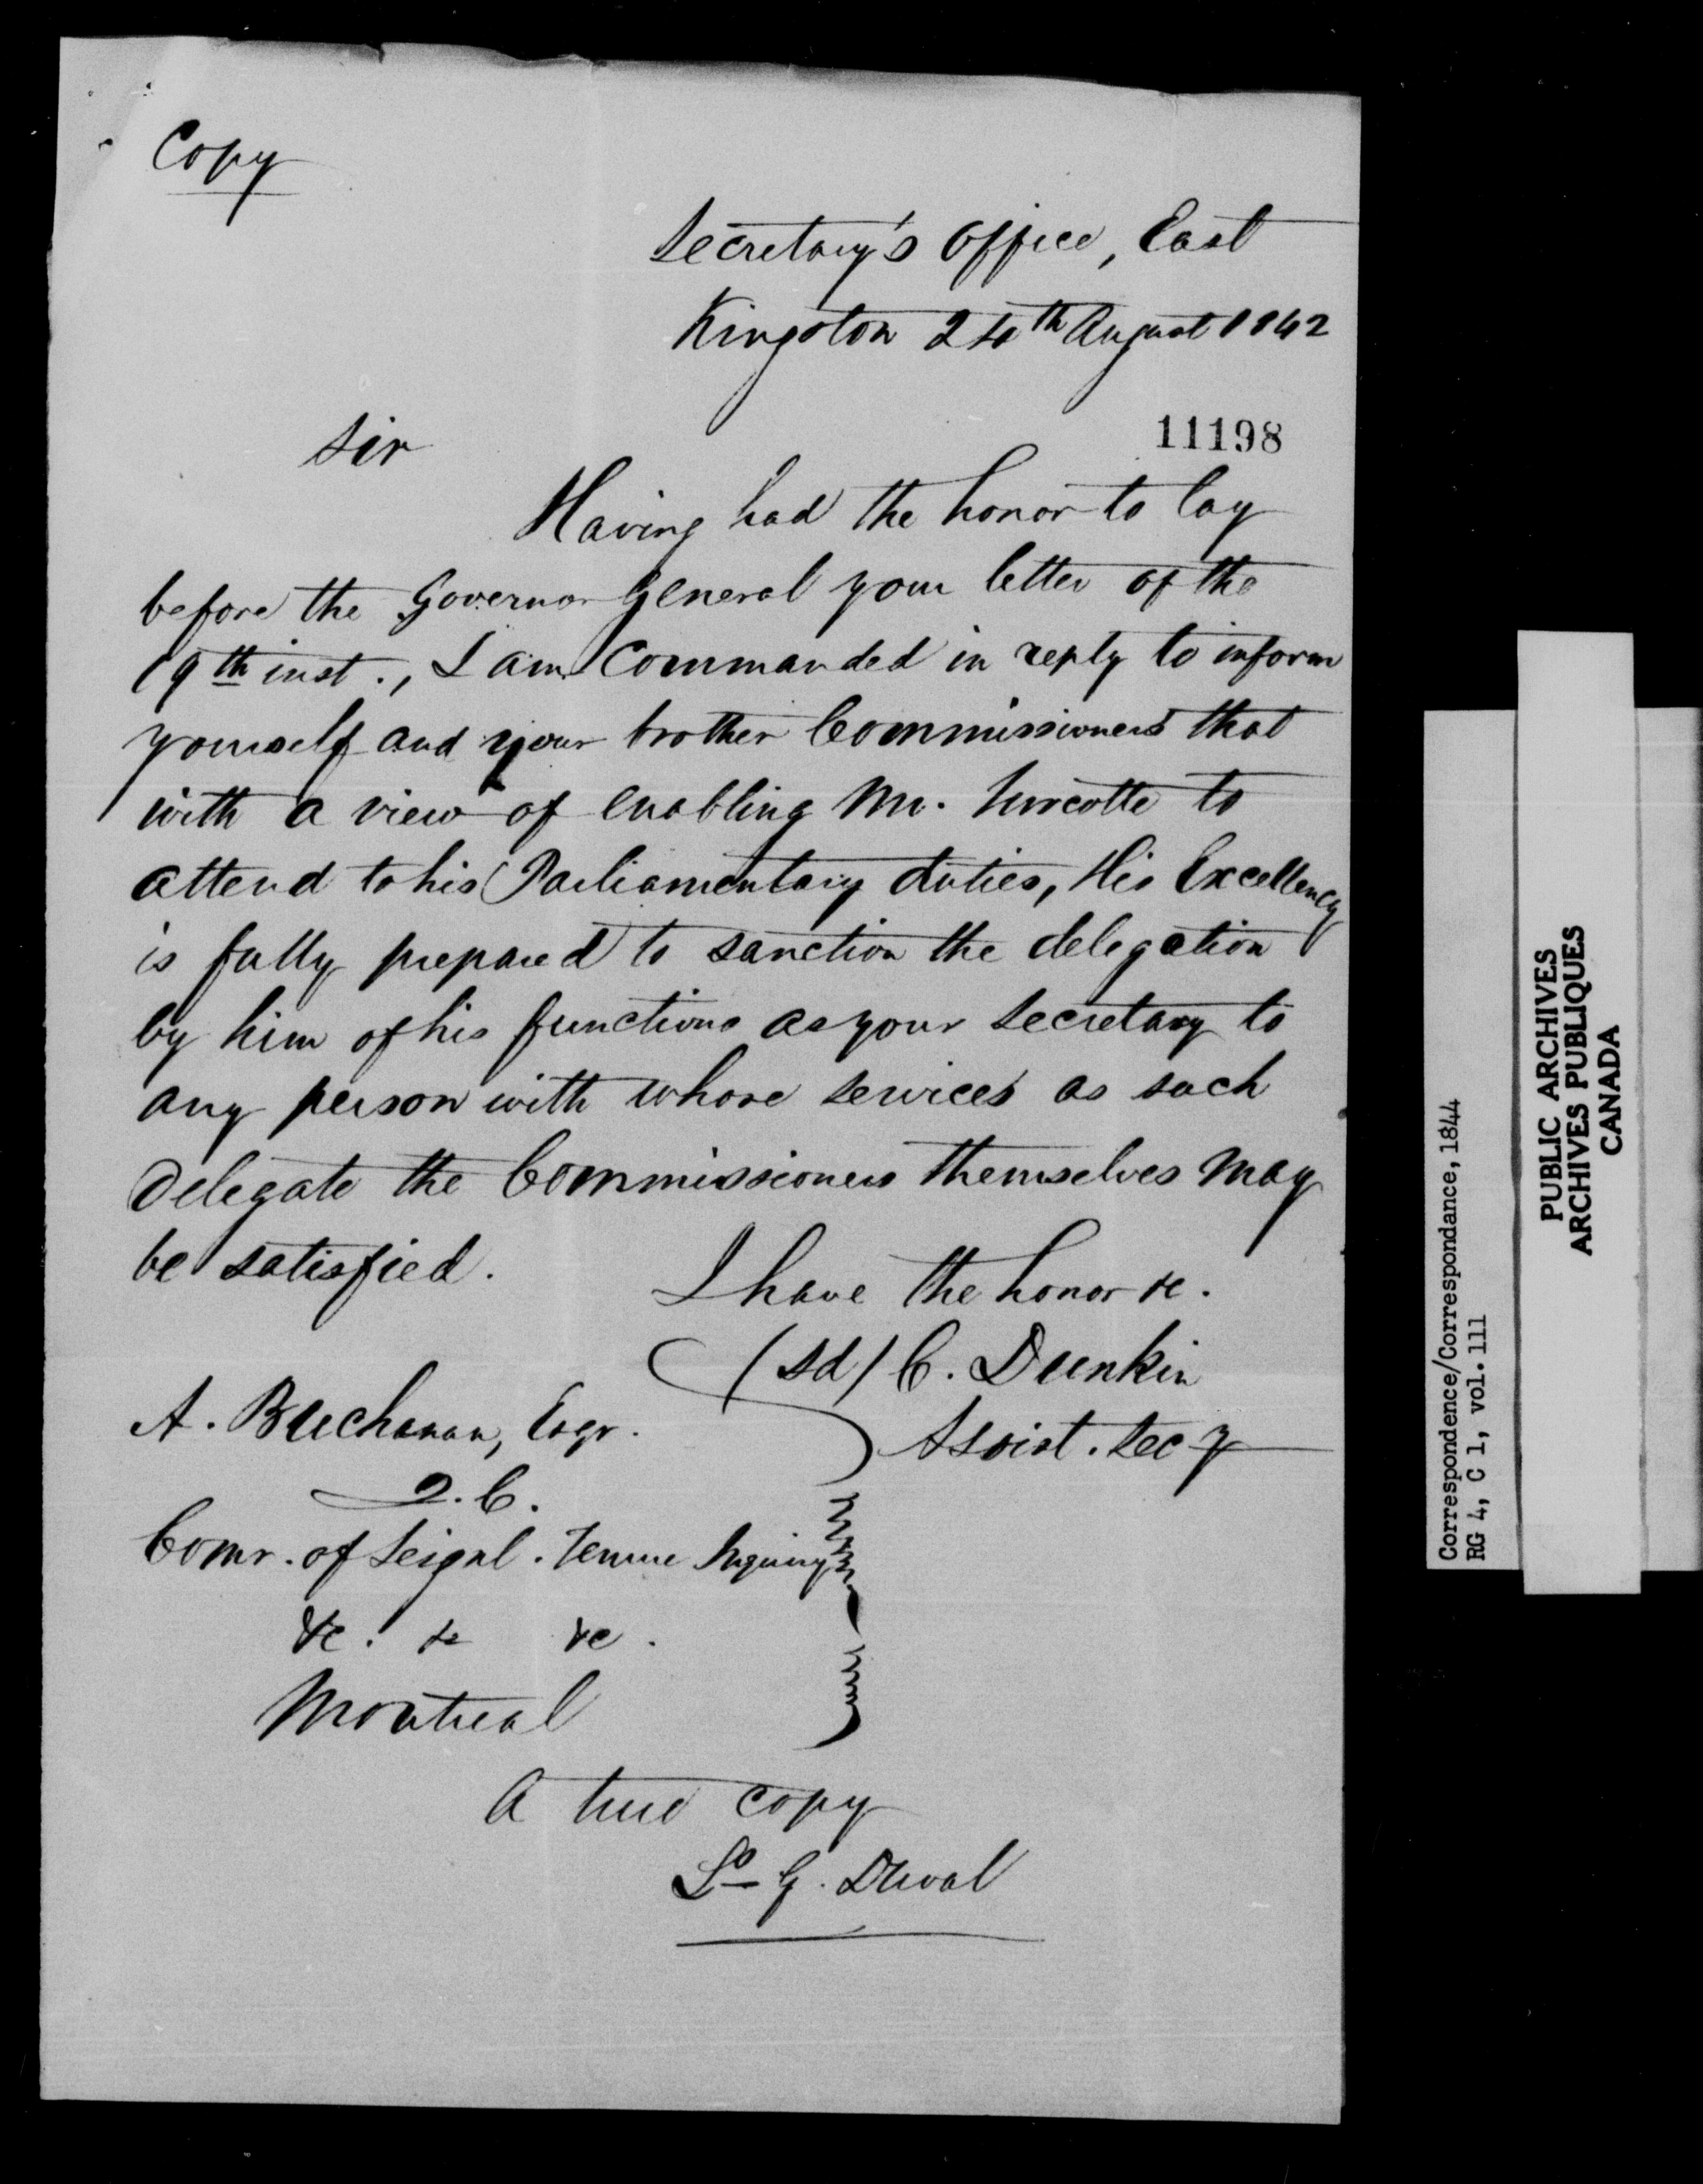 Copy
Secretary's Office, East
Kingston 24th August 1842
11198
Sir
Having had the honor to lay
before the Governor General your letter of the
19th inst., I am Commanded in reply to inform
yourself and your brother Commissioners that
with a view of enabling Mr. Turcotte to
attend to his Parliamentary duties, His Excellency
is fully prepared to sanction the delegation
by him of his functions as your Secretary to
any person with whose services as such
Delegate the Commissioners themselves may
be satisfied.
I have the honor &c.
(sd) C. Dunkin
Assist. Secy
A. Buchanan, Esqr.
Q.C.
Comr. of Seignl. Tenure Inquiry
&c. &c &c.
Montreal
A true copy
Ls G. Duval
Correspondence/Correspondance, 1844
RG 4, C 1, vol. 111
PUBLIC ARCHIVES
ARCHIVES PUBLIQUES
CANADA